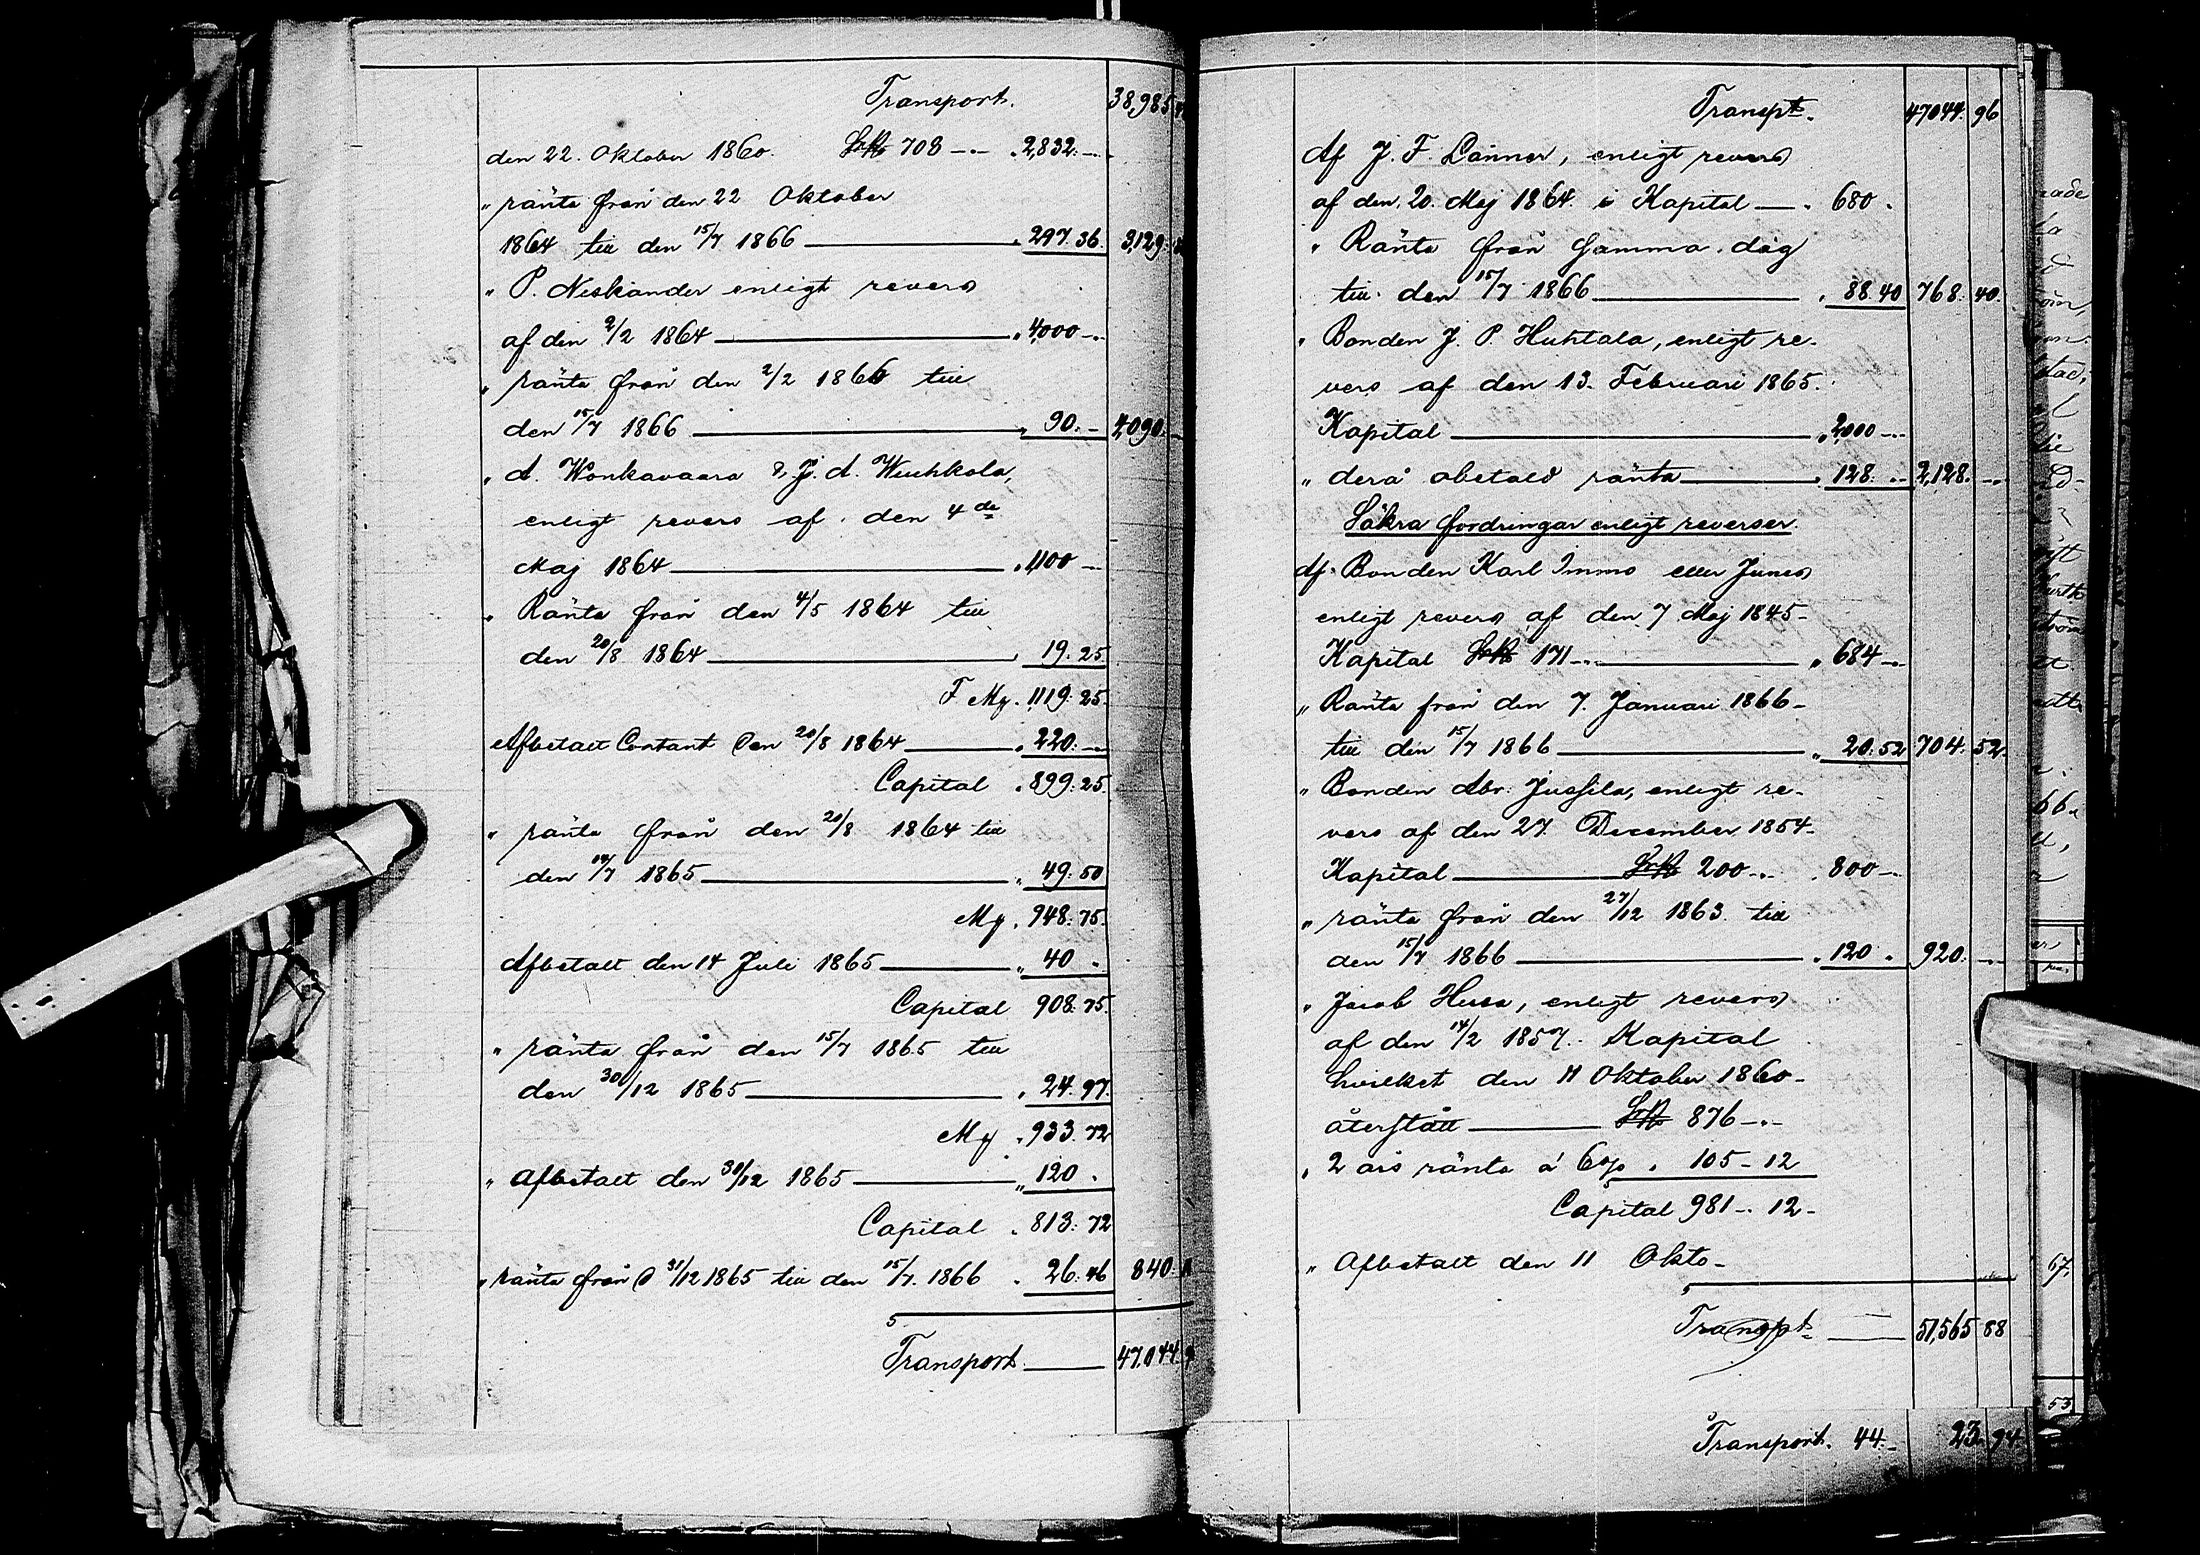 Transport. 38,985
den 22. Oktober 1860. SrR 708 –.– „ 2,832. –.
„ ränta från den 22 Oktober
1864 till den 15/7 1866 „ 297. 36. 3,129.
„ P. Niskander enligt revers
af den 2/2 1864 „ 4,000 –.
„ ränta från den 2/2 1866 till
den 15/7 1866 „ 90. – 4,090. –
„ A. Wonkavaara & J. A. Wiuhkola,
enligt revers af den 4de
Maj 1864 „ 1,100 –
„ Ränta från den 4/5 1864 till
den 20/8 1864 „ 19. 25
F Mg. 1,119. 25.
Afbetalt Contant den 20/8 1864 „ 220. –
Capital „ 899. 25.
„ ränta från den 20/8 1864 till
den 14/7 1865 „ 49. 50
Mg. 948. 75.
Afbetalt den 14 Juli 1865 „ 40 „
Capital 908. 75.
„ ränta från den 15/7 1865 till
den 30/12 1865 „ 24. 97.
Mg „ 933. 72
„ Afbetalt den 30/12 1865 „ 120 „
Capital „ 813. 72
„ ränta från d 31/12 1865 till den 15/7. 1866 „ 26. 46 840.
Transport 47,044.
Transpt. 47044. 96
Af J. F. Lanner, enligt revers
af den 20. Maj 1864 i Kapital „ 680 „
„ Ränta från samma dag
till den 15/7 1866 „ 88. 40 768. 40.
„ Bonden J. P. Huhtala, enligt re-
vers af den 13. Februari 1865.
Kapital „ 2,000 –.
„ derå obetald ränta „ 128. – 2,128. –
Säkra fordringar enligt reverser.
Af Bonden Karl Immo eller Junes
enligt revers af den 7 Maj 1845 –
Kapital SrR 171 –. „ 684 –.
„ Ränta från den 7. Januari 1866 –
till den 15/7 1866 „ 20. 52 704. 52.
„ Bonden Abr. Jussila, enligt re-
vers af den 27. December 1854 –
Kapital SrR 200 –. „ 800 –.
„ ränta från den 27/12 1863 till
den 15/7 1866 „ 120 „ 920. –
„ Jacob Husa, enligt revers
af den 14/2 1857. Kapital
hvilket den 11 Oktober 1860 –
återstått SrR 876 –. –
„ 2 års ränta á 6% „ 105 – 12
Capital 981 –. 12 –
„ Afbetalt den 11 Okto –
Transpt 51,565 88
Transport. 44. – 23. 94.